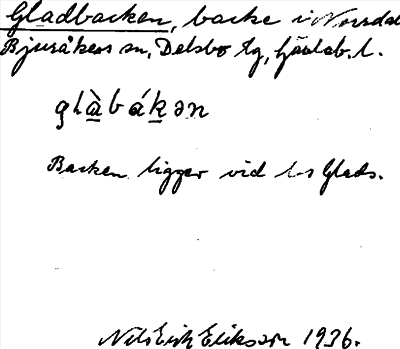 Gladbacken, backe i Norrdal
Bjuråkers sn, Delsbo tg, Gävleb. l.
glàbákən
Backen ligger vid Glads.
Nils Erik Eriksson 1936.